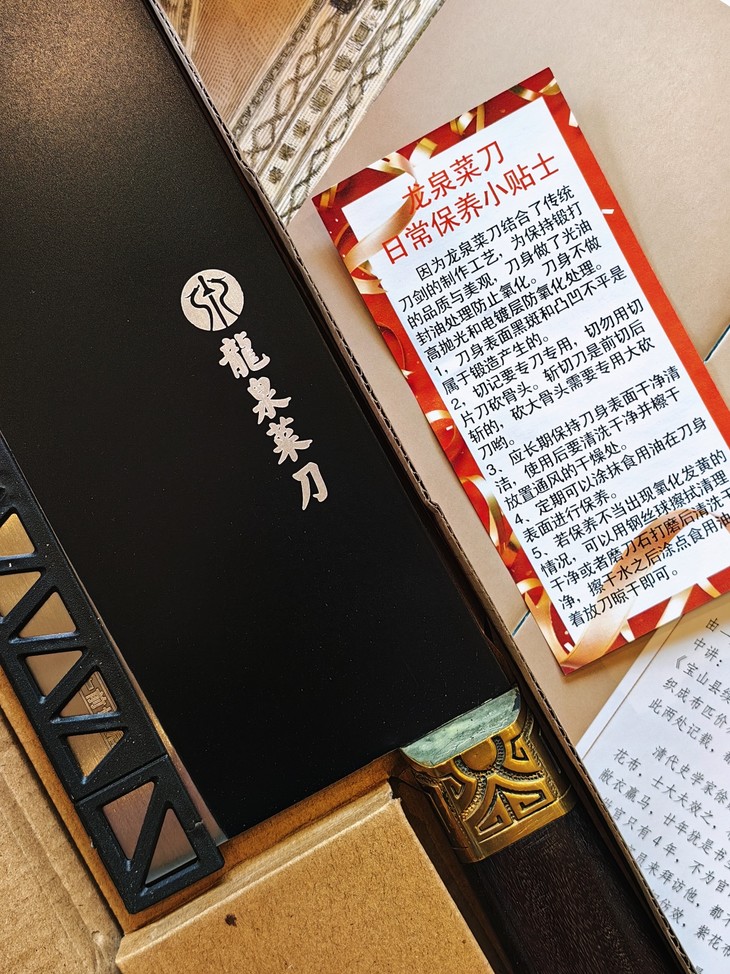 龍泉菜刀
龙泉菜刀
日常保养小贴士
因为龙泉菜刀结合了传统
刀剑的制作工艺，为保持锻打
的品质与美观，刀身做了光油
封油处理防止氧化。刀身不做
高抛光和电镀层防氧化处理。
1、刀身表面黑斑和凸凹不平是
属于锻造产生的。
2、切记要专刀专用，切勿用切
片刀砍骨头。斩切刀是前切后
斩的，砍大骨头需要专用大砍
刀哟。
3、应长期保持刀身表面干净清
洁，使用后要清洗干净并擦干
放置通风的干燥处。
4、定期可以涂抹食用油在刀身
表面进行保养。
5、若保养不当出现氧化发黄的
情况，可以用钢丝球擦拭清理
干净或者磨刀石打磨后清洗干
净，擦干水之后涂点食用油
着放刀晾干即可。
由一
中讲：
《宝山县续
织成布匹价
此两处记载，都
清代史学家徐
花布，士大夫效之，
散衣羸马，廿年犹是书生
官只有4年，不为官
员来拜访他，都不
仿效，紫花布